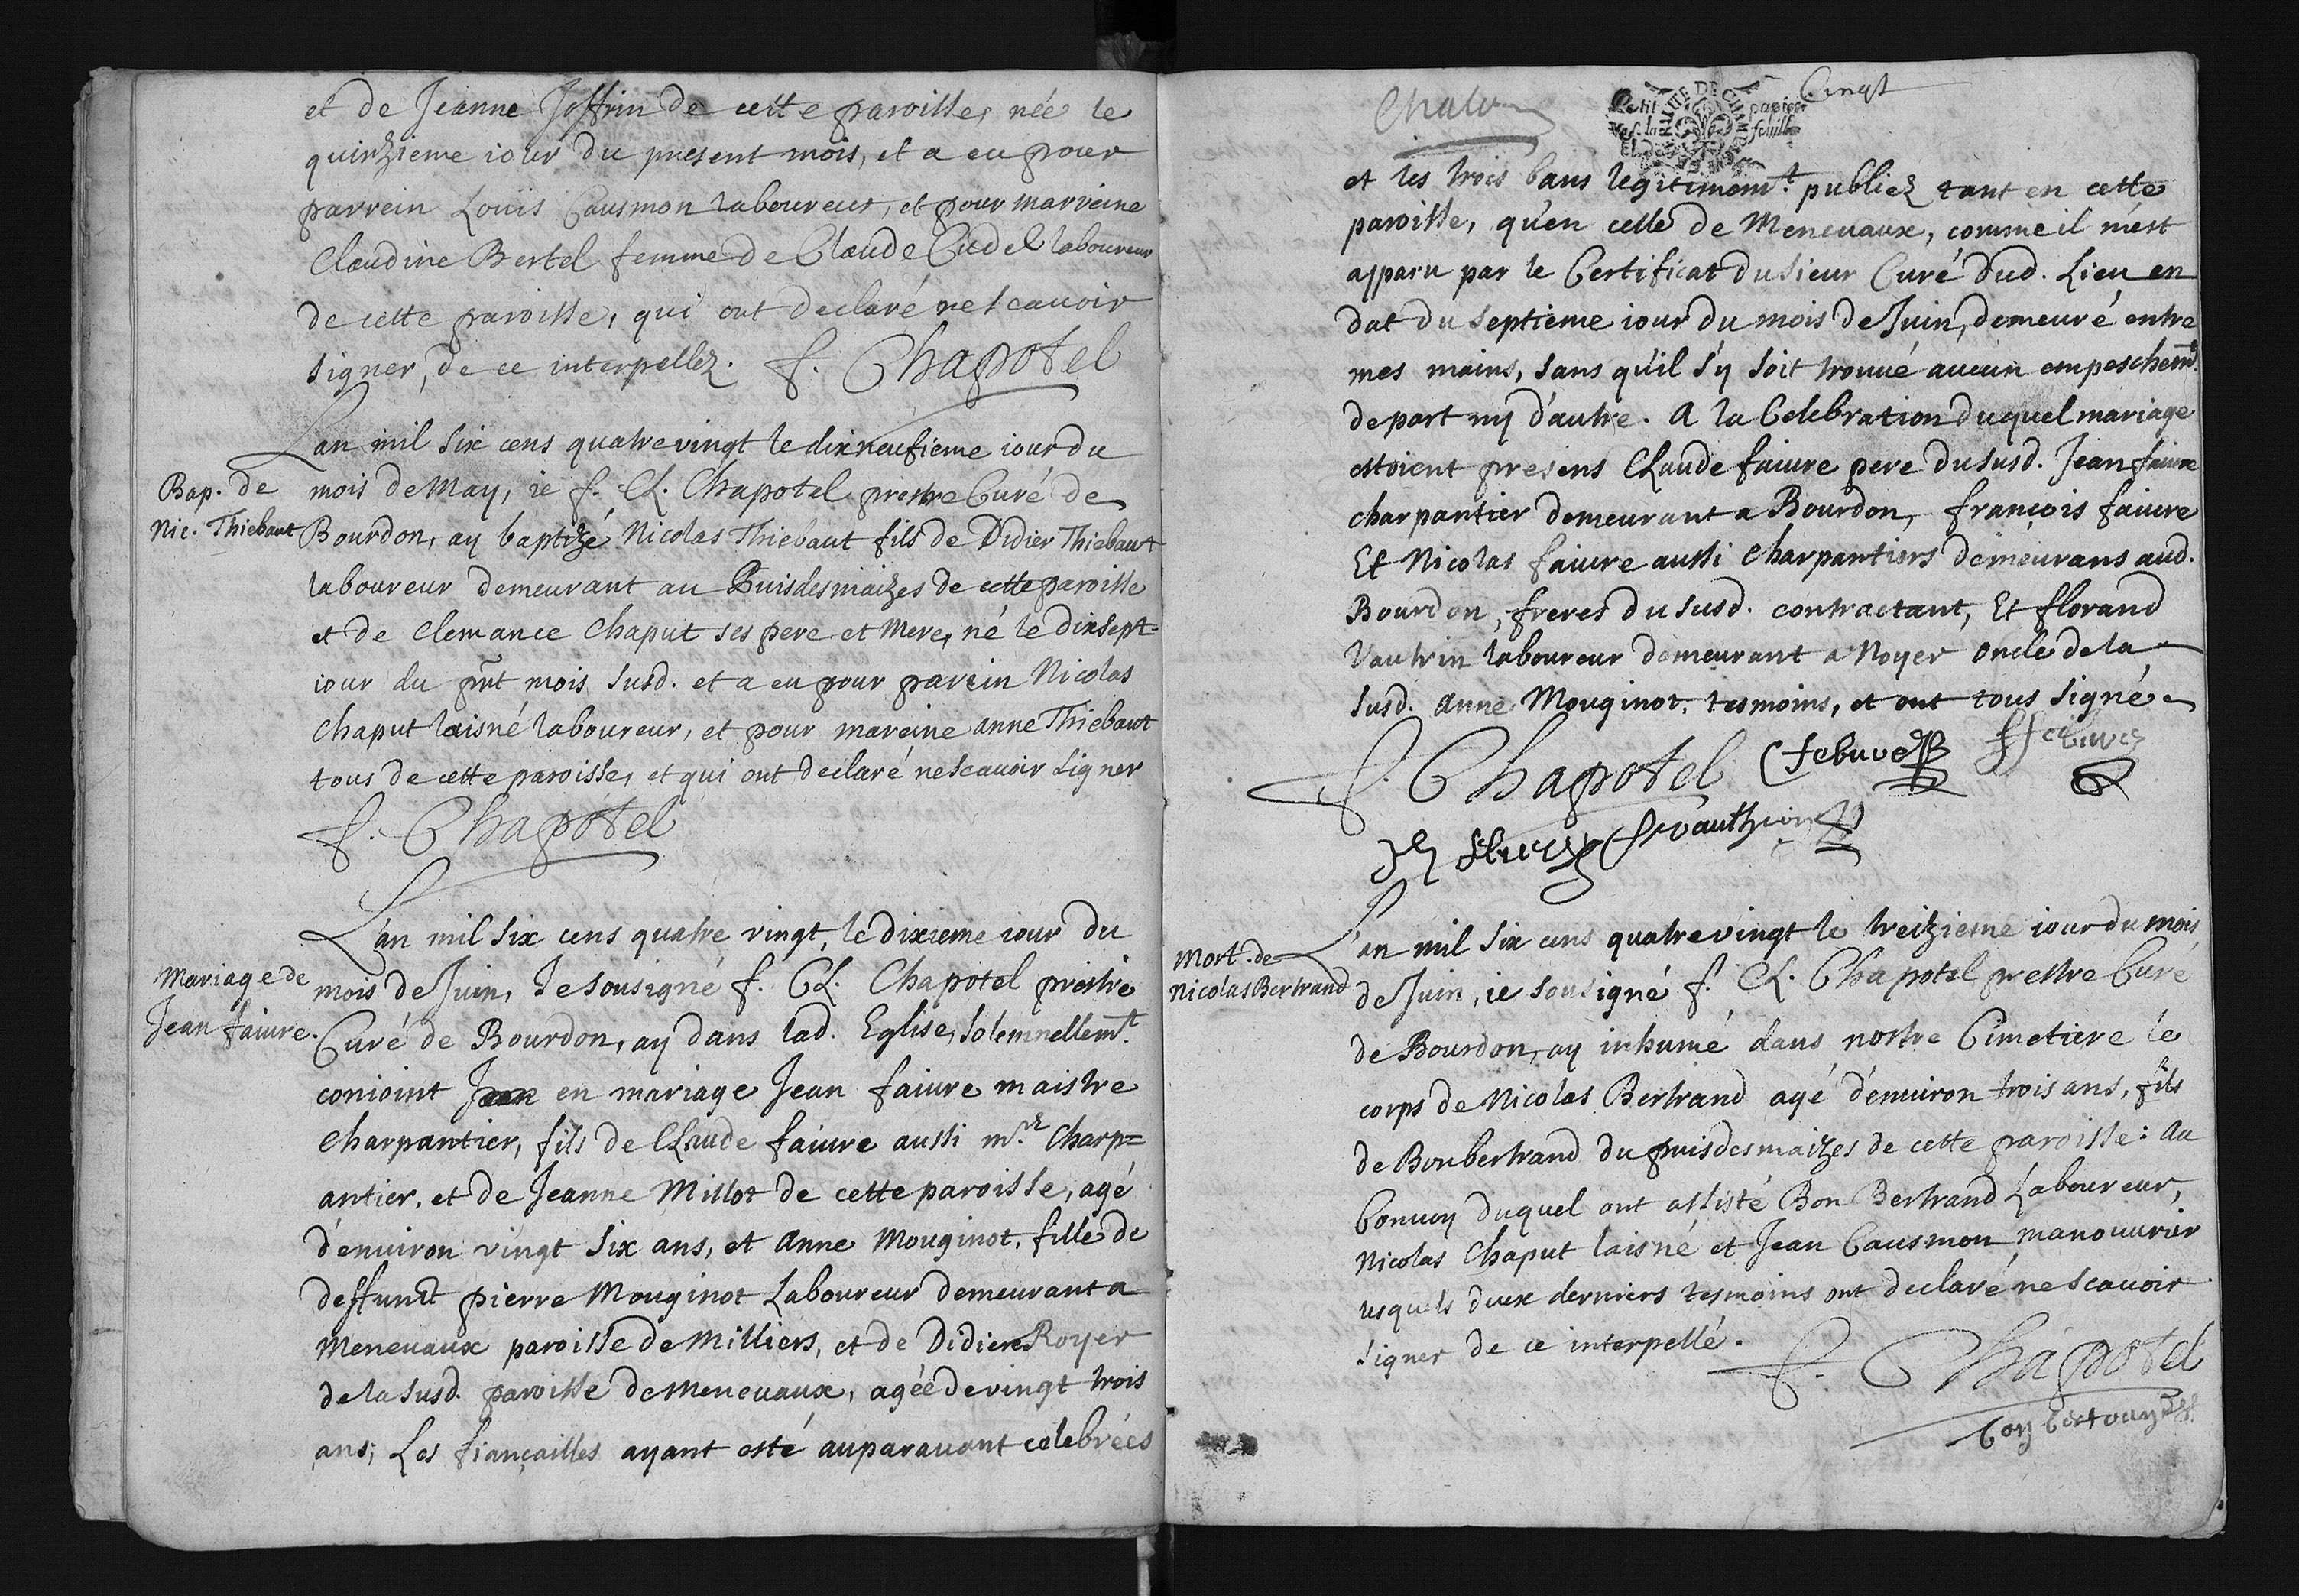 et de Jeanne Joffrin de cette paroisse, née le
quinzieme iour du present mois, et a eu pour
parrein Loüis Causmon laboureur, et pour marreine
Claudine Bertel femme de Claude Cudel laboureur
de cette paroisse, qui ont declaré ne scauoir
signer, de ce interpellez. f. Chapotel
Lan mil six cens quatre vingt le dix neufieme iour du
Bap. de
Nic. Thiebaut
mois de May, ie f. Cl. Chapotel prestre Curé de
Bourdon, ay baptizé Nicolas Thiebaut fils de Didier Thiebaut
laboureur demeurant au Puisdesmaizes de cette paroisse
et de Clemance Chaput ses pere et mere, né le dixsept=
iour du pnt mois susd. et a eu pour parein Nicolas
Chaput laisné laboureur, et pour mareine anne Thiebaut
tous de cette paroisse, et qui ont declaré ne scauoir signer
f. Chapotel
L'an mil six cens quatre vingt, le dixieme iour du
Mariage de
Jean faiure.
mois de Juin, Je sousigné f. Cl. Chapotel prestre
Curé de Bourdon, ay dans lad. Eglise, solemnellemt.
conioint en mariage Jean faiure maistre
charpantier, fils de Claude faiure aussi mre. Charp=
antier, et de Jeanne Millot de cette paroisse, agé
d'enuiron vingt six ans, et anne Mouginot, fille de
deffunct pierre Mouginot Laboureur demeurant a
Meneuaux paroisse de Milliers, et de Didiere Royer
de la susd. paroisse de Meneuaux, agée de vingt trois
ans; Les fiançailles ayant esté auparauant celebrées
Petit papier
la feuille
Cinqt
et les trois bans legitimemt. publiez tant en cette
paroisse, qu'en celle de Meneuaux, comme il m'est
apparu par le Certificat du sieur Curé dud. Lieu en
dat du septieme iour du mois de Juin, demeuré entre
mes mains, sans qu'il s'y soit trouué aucun empeschemt.
de part ny d'autre. A la Celebration duquel mariage
estoient presens Claude faiure pere du susd. Jean faiure
charpantier demeurant a Bourdon, françois faiure
Et Nicolas faiure aussi charpantiers demeurans aud.
Bourdon, freres du susd. contractant, Et florand
Vautrin laboureur demeurant a Noyer oncle de la
susd. anne Mouginot, tesmoins, et ont tous signé
f. Chapotel C febuvre
f vauthrin
L'an mil six cens quatre vingt le treizieme iour du mois
Mort. de
Nicolas Bertrand
de Juin, ie sousigné f. Cl. Chapotel prestre Curé
de Bourdon, ay inhumé dans nostre Cimetiere le
corps de Nicolas Bertrand agé d'enuiron trois ans, fils
de Bonbertrand du puisdesmaizes de cette paroisse: au
Conuoy duquel ont assisté Bon Bertrand Laboureur,
Nicolas Chaput laisné et Jean Causmon manouurier
lesquels deux derniers tesmoins ont declaré ne scauoir
signer de ce interpellé.
f. Chapotel